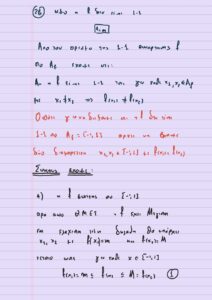 26 νδο η f δεν είναι 1-1
Λύση
Από τον ορισμό της 1-1 συνάρτησης f
στο Af έχουμε ότι:
Αν η f είναι 1-1 τότε για κάθε x1, x2 ∈ Af
με x1 ≠ x2 ⇒ f(x1) ≠ f(x2)
Οπότε για να δείξουμε ότι η f δεν είναι
1-1 στο Af = [-1, 1] αρκεί να βρούμε
δύο διαφορετικά x1, x2 ∈ [-1, 1] με f(x1) = f(x2)
α) η f συνεχής στο [-1, 1]
άρα από Θ.Μ.Ε.Τ η f έχει Μέγιστη
και ελάχιστη τιμή δηλαδή θα υπάρχει
x1, x2 με f(x1) = m και f(x2) = M
τέτοια ώστε για κάθε x ∈ [-1, 1]
f(x1) = m ≤ f(x) ≤ M = f(x2) 1